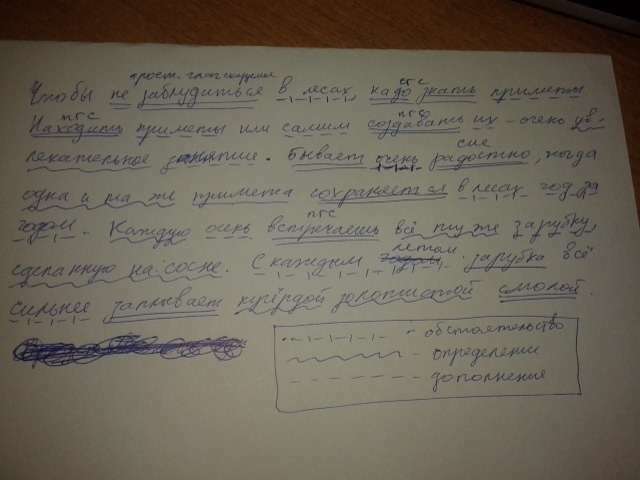 прост. глаг. сказуемое
Чтобы не заблудиться в лесах, надо знать приметы.
сгс
Находить приметы или самим создавать их - очень ув-
пгс пгс
лекательное занятие. Бывает очень радостно, когда
сис
одна и та же примета сохраняется в лесах год за
годом. Каждую осень встречаешь всё ту же зарубку,
пгс
сделанную на сосне. С каждым летом зарубка всё
сильнее заплывает кучёрдой золотистой смолой.
- обстоятельство
- определение
- дополнение